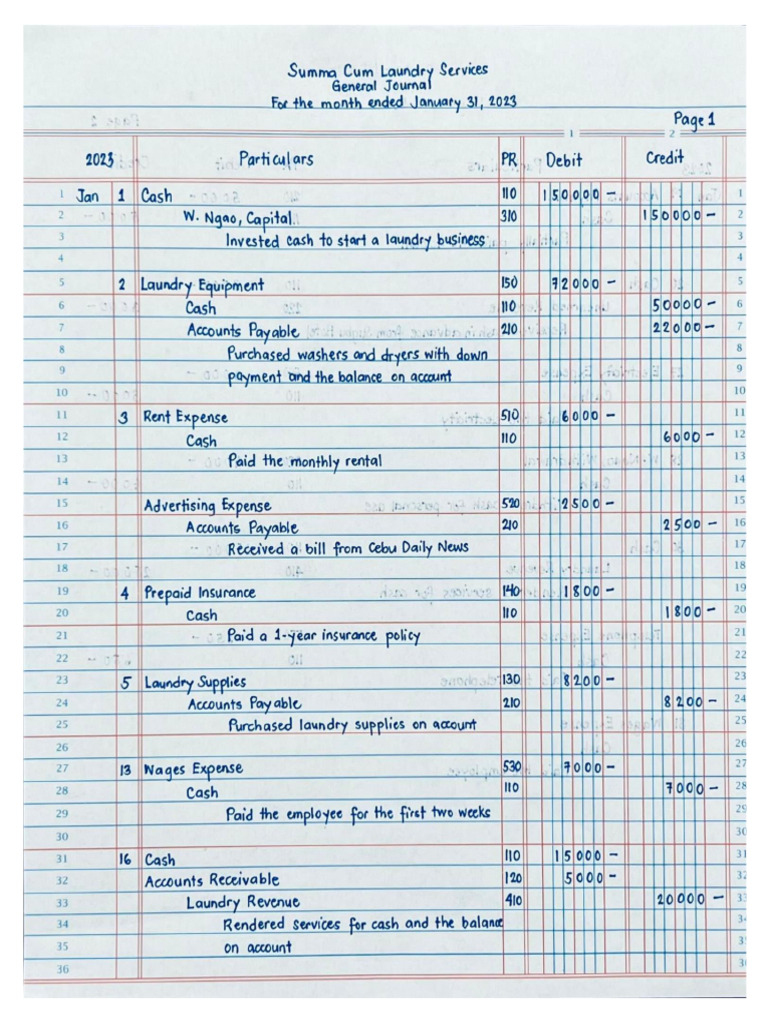 Summa Cum Laundry Services
General Journal
For the month ended January 31, 2023
Page 1
1 2
2023 Particulars PR Debit Credit
1 Jan 1 Cash 110 150000- 1
2 W. Ngao, Capital 310 150000- 2
3 Invested cash to start a laundry business 3
4 4
5 2 Laundry Equipment 150 72000- 5
6 Cash 110 50000- 6
7 Accounts Payable 210 22000- 7
8 Purchased washers and dryers with down 8
9 payment and the balance on account 9
10 10
11 3 Rent Expense 510 6000- 11
12 Cash 110 6000- 12
13 Paid the monthly rental 13
14 14
15 Advertising Expense 520 2500- 15
16 Accounts Payable 210 2500- 16
17 Received a bill from Cebu Daily News 17
18 18
19 4 Prepaid Insurance 140 1800- 19
20 Cash 110 1800- 20
21 Paid a 1-year insurance policy 21
22 22
23 5 Laundry Supplies 130 8200- 23
24 Accounts Payable 210 8200- 24
25 Purchased laundry supplies on account 25
26 26
27 13 Wages Expense 530 7000- 27
28 Cash 110 7000- 28
29 Paid the employee for the first two weeks 29
30 30
31 16 Cash 110 15000- 31
32 Accounts Receivable 120 5000- 32
33 Laundry Revenue 410 20000- 33
34 Rendered services for cash and the balance
35 on account
36